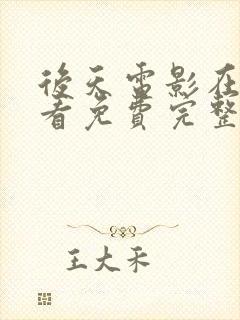 後天雷影在
看免費完整
王大禾